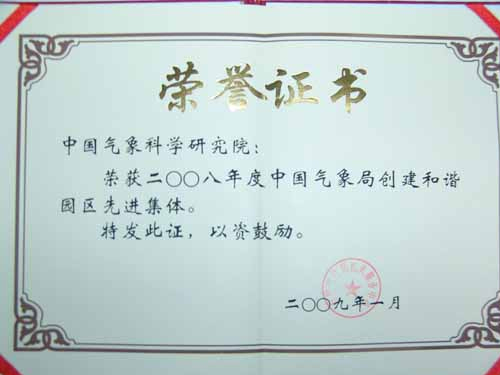 荣誉证书
中国气象科学研究院：
荣获二〇〇八年度中国气象局创建和谐
园区先进集体。
特发此证，以资鼓励。
二〇〇九年一月